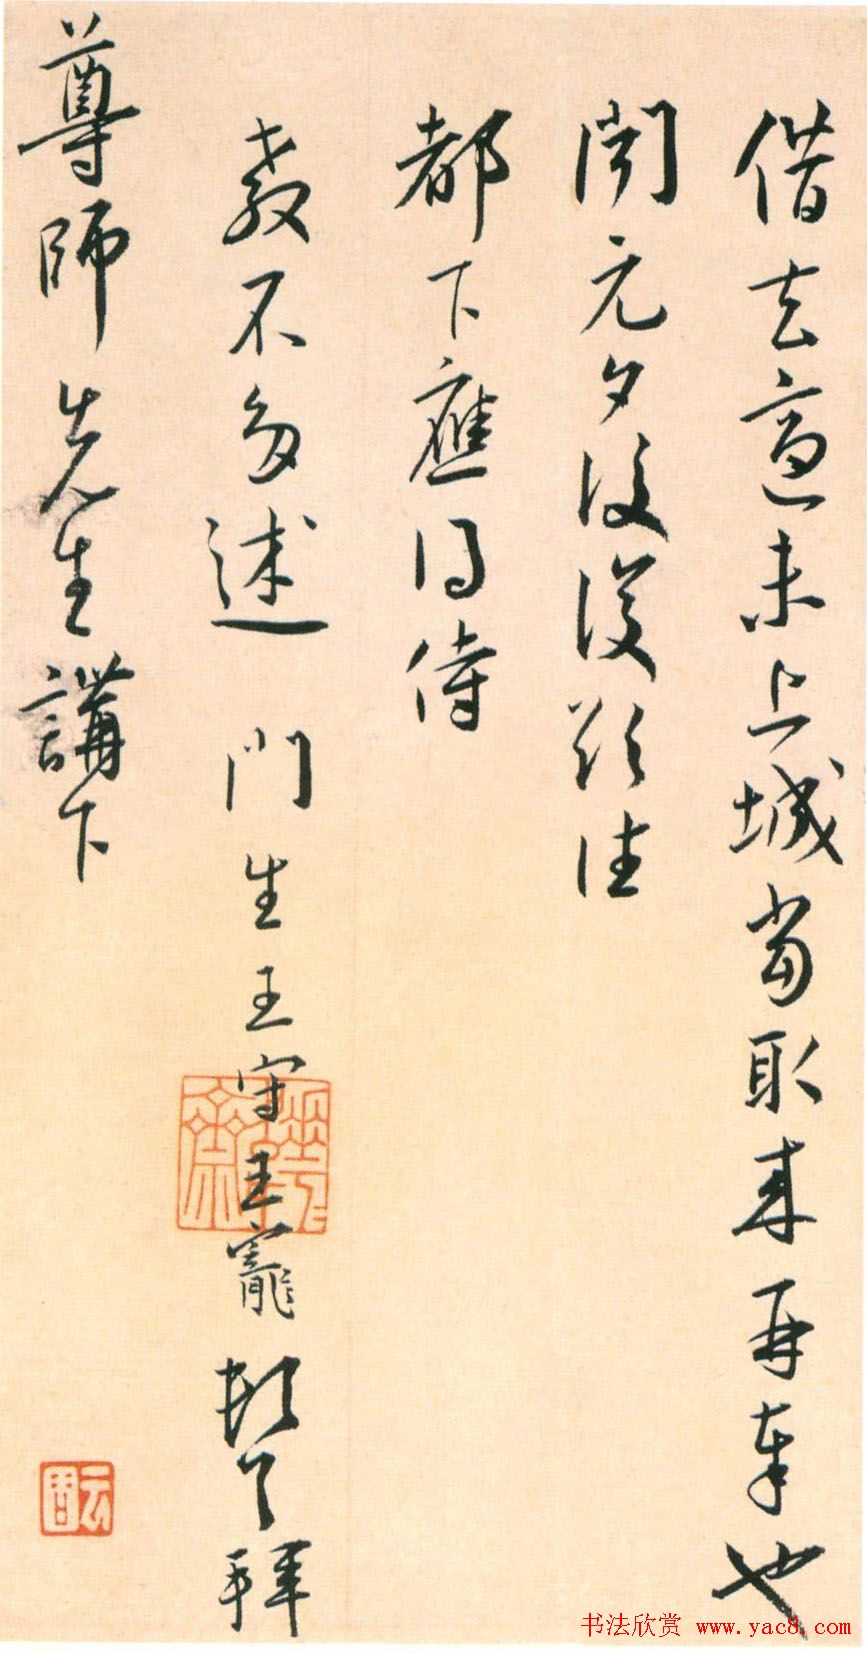 借去適未上城當取來再奉也
聞元夕後復欲往
都下應得侍
教不多述 門生王守王寵頓首拜
尊師先生講下
书法欣赏 www.yac8.com